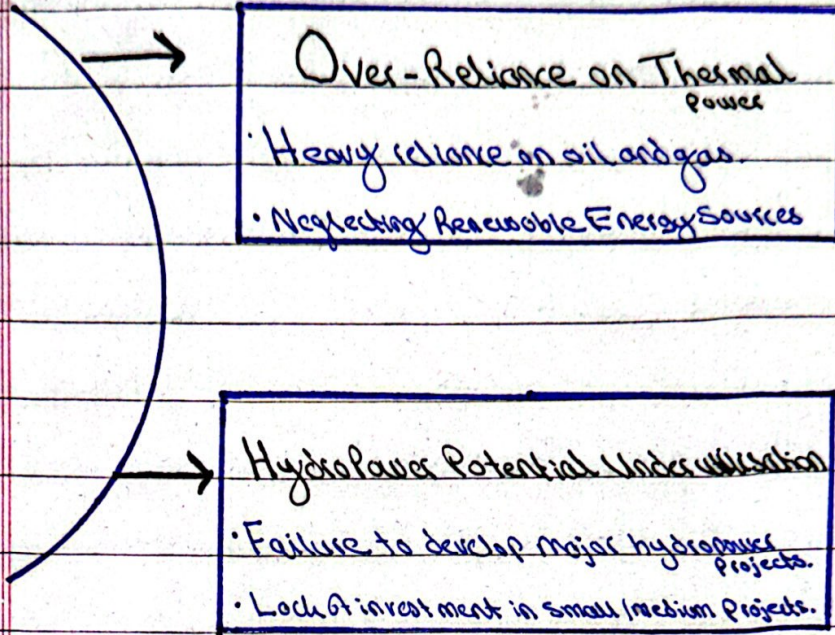 Over-Reliance on Thermal
Power
· Heavy reliance on oil and gas.
· Neglecting Renewable Energy Sources
HydroPower Potential Underutilisation
· Failure to develop major hydropower
projects.
· Lack of investment in small/medium projects.